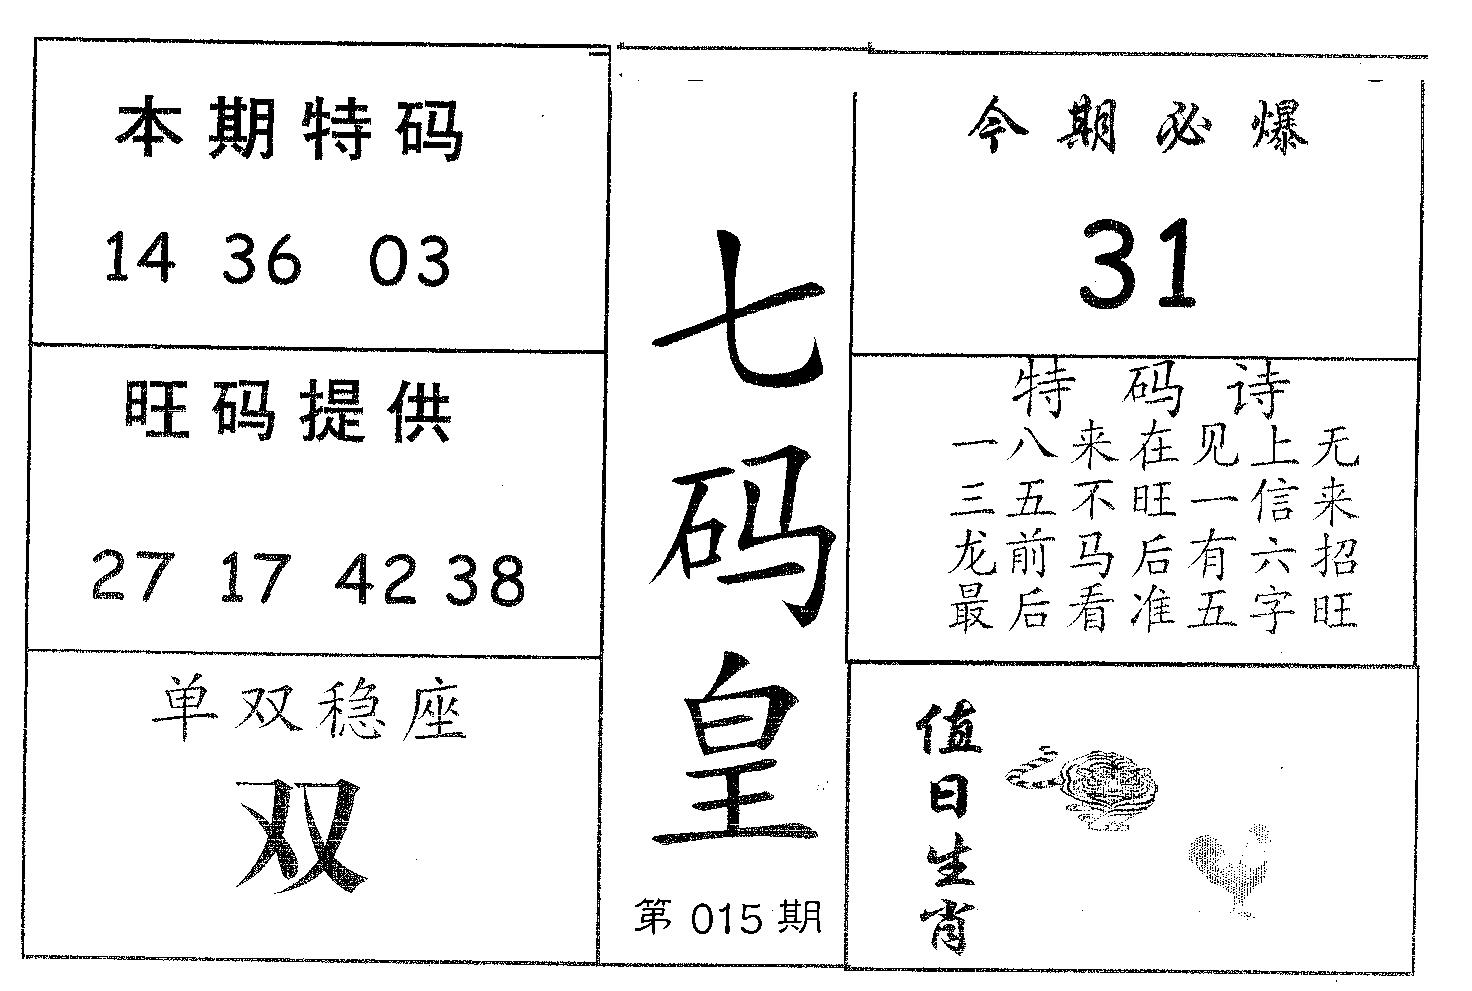 本期特码
14 36 03
旺码提供
27 17 42 38
单双稳座
双
七码皇
第015期
今期必爆
31
特码诗
一八来在见上无
三五不旺一信来
龙前马后有六招
最后看准五字旺
值日生肖